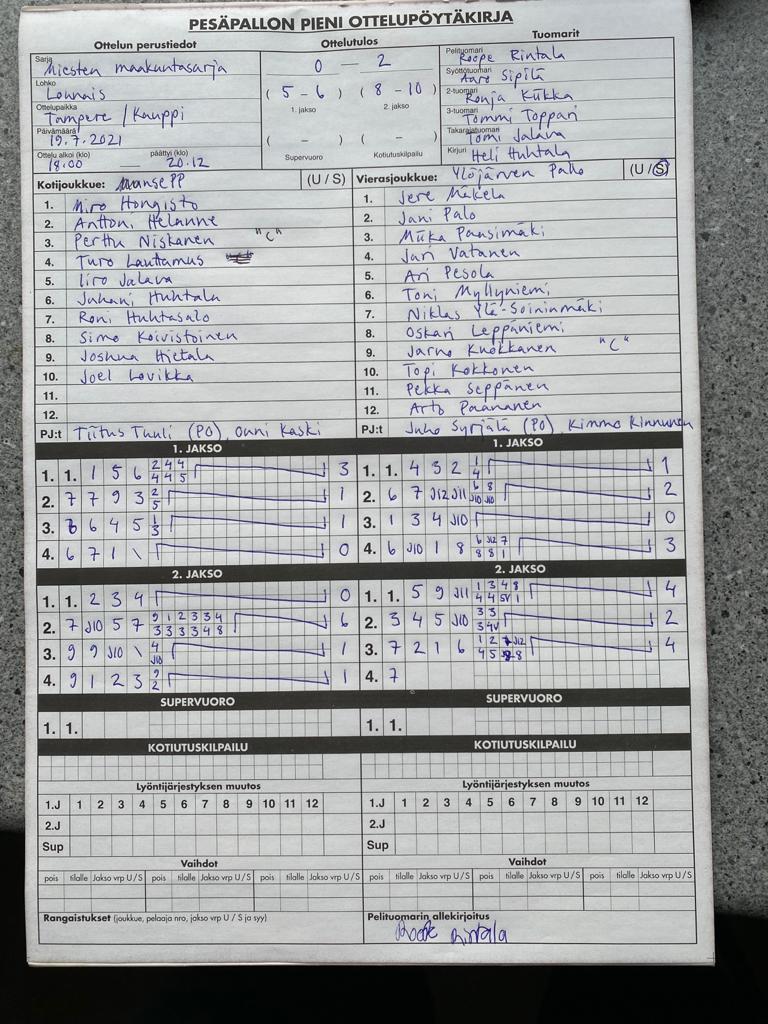 PESÄPALLON PIENI OTTELUPÖYTÄKIRJA
Ottelun perustiedot
Sarja Miesten maakuntasarja
Lohko Lounais
Ottelupaikka Tampere / Kauppi
Päivämäärä 19.7.2021
Ottelu alkoi (klo) 18.00 — päättyi (klo) 20.12
Ottelutulos
0 — 2
( 5 - 6 ) ( 8 - 10 )
1. jakso 2. jakso
( - ) ( - )
Supervuoro Kotiutuskilpailu
Tuomarit
Pelituomari Roope Rintala
Syöttötuomari Aaro Sipilä
2-tuomari Ronja Kukka
3-tuomari Tommi Toppari
Takarajatuomari Tomi Jalava
Kirjuri Heli Huhtala
Kotijoukkue: Manse PP (U / S)
1. Miro Hongisto
2. Anttoni Helanne
3. Perttu Niskanen "C"
4. Turo Lauttamus
5. Iiro Jalava
6. Juhani Huhtala
7. Roni Huhtasalo
8. Simo Koivistoinen
9. Joshua Hietala
10. Joel Lovikka
11.
12.
PJ:t Tiitus Tuuli (PO), Onni Kaski
Vierasjoukkue: Ylöjärven Pallo (U / S)
1. Jere Mäkelä
2. Jani Palo
3. Miika Pansimäki
4. Jari Vatanen
5. Ari Pesola
6. Toni Myllyniemi
7. Niklas Ylä-Soininmäki
8. Oskari Leppäniemi
9. Jarno Knuokkanen "C"
10. Topi Kokkonen
11. Pekka Seppänen
12. Arto Paananen
PJ:t Juho Syrjälä (PO), Kimmo Kinnunen
1. JAKSO
1. 1. 1 5 6 2 4 4 3
4 4 5
2. 7 7 9 3 2 1
5
3. 6 6 4 5 1 1
3
4. 6 7 1 \ 0
2. JAKSO
1. 1. 2 3 4 0
2. 7 J10 5 7 9 1 2 3 3 4 6
3 3 3 3 4 8
3. 9 9 J10 \ 4 1
J10
4. 9 1 2 3 9 1
2
SUPERVUORO
1. 1.
KOTIUTUSKILPAILU
Lyöntijärjestyksen muutos
1.J 1 2 3 4 5 6 7 8 9 10 11 12
2.J
Sup
Vaihdot
pois tilalle Jakso vrp U / S pois tilalle Jakso vrp U / S pois tilalle Jakso vrp U / S
Rangaistukset (joukkue, pelaaja nro, jakso vrp U / S ja syy)
1. JAKSO
1. 1. 4 3 2 1 1
4
2. 6 7 J12 J11 6 8 2
J10 J10
3. 1 3 4 J10 0
4. 6 J10 1 8 6 J12 7 3
8 8 1
2. JAKSO
1. 1. 5 9 J11 1 3 4 8 4
4 4 5V 1
2. 3 4 5 J10 3 3 2
3 4V
3. 7 2 1 6 1 2 7 J12 4
4 5 8 8
4. 7
SUPERVUORO
1. 1.
KOTIUTUSKILPAILU
Lyöntijärjestyksen muutos
1.J 1 2 3 4 5 6 7 8 9 10 11 12
2.J
Sup
Vaihdot
pois tilalle Jakso vrp U / S pois tilalle Jakso vrp U / S pois tilalle Jakso vrp U / S
Pelituomarin allekirjoitus
Roope Rintala